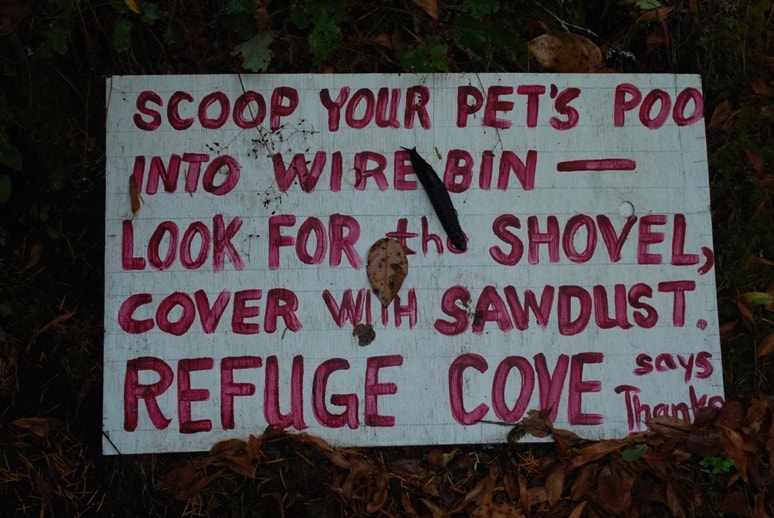 SCOOP YOUR PET'S POO
INTO WIRE BIN —
LOOK FOR the SHOVEL,
COVER WITH SAWDUST.
REFUGE COVE says
Thanks